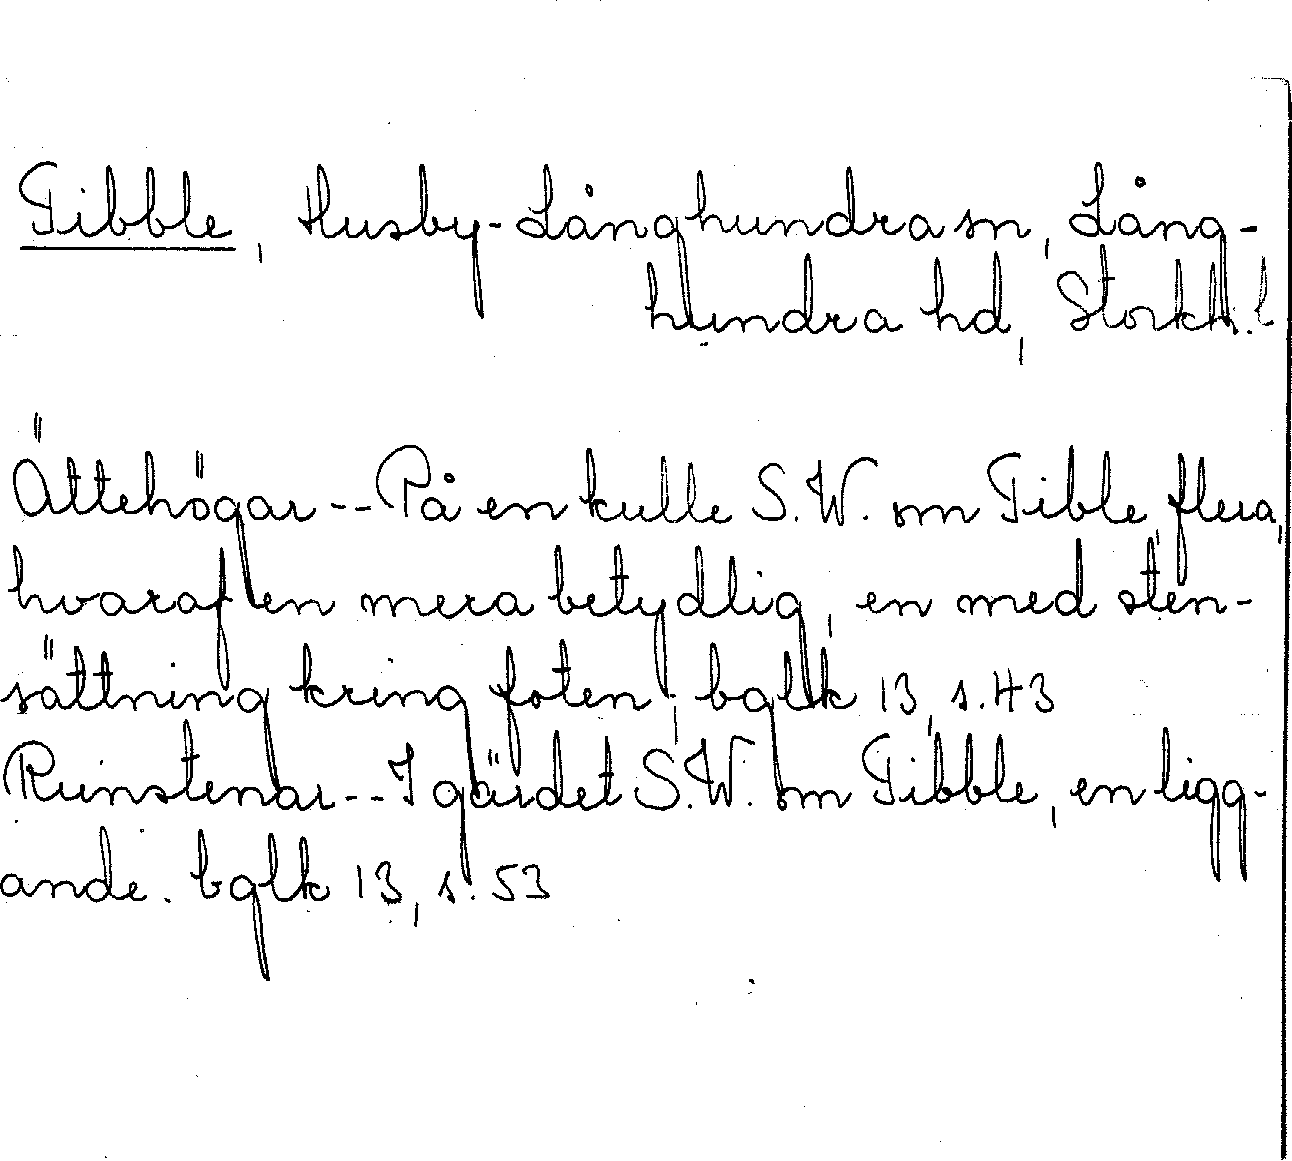 Tibble, Husby-Långhundra sn, Lång-
hundra hd, Stockh. l
Ättehögar -- På en kulle S.W. om Tible, flera,
hvaraf en mera betydlig, en med sten-
sättning kring foten; bglk 13, s. 43
Runstenar -- I gärdet S.W. om Tibble, en ligg-
ande. bglk 13, s. 53